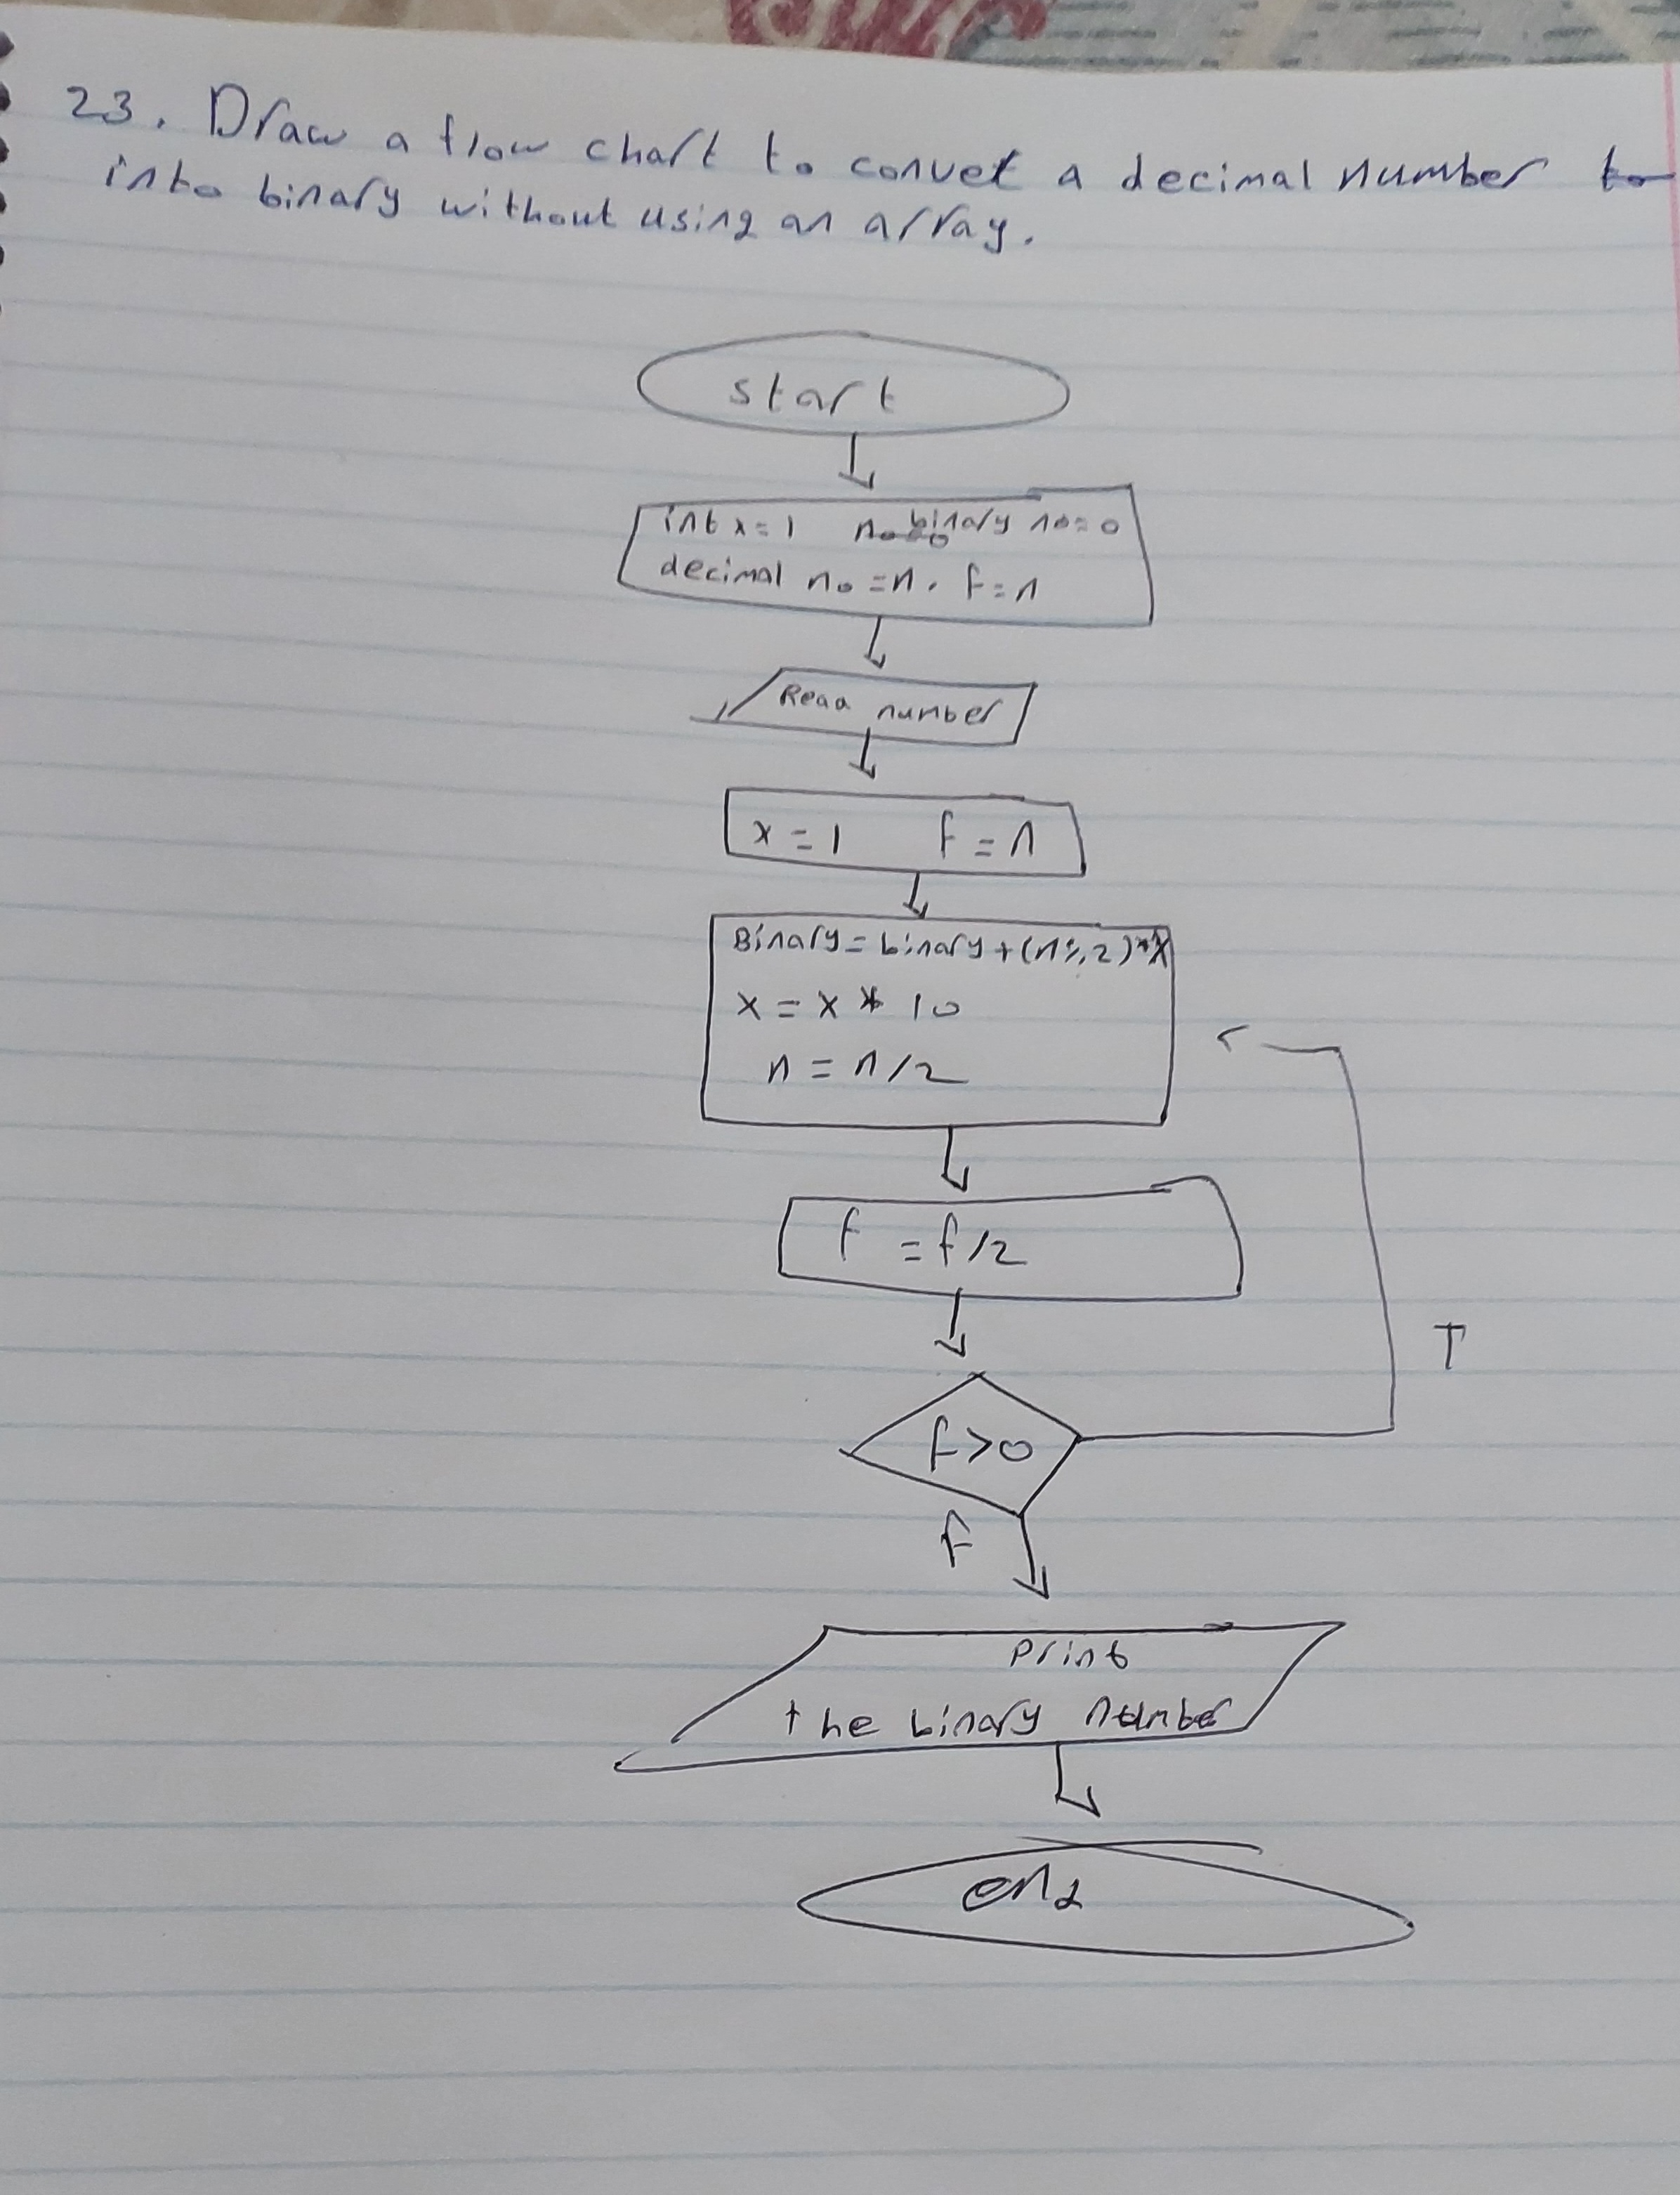 23. Draw a flow chart to convet a decimal number to
into binary without using an array.
start
int x = 1 no binary no = 0
decimal no = n. f = n
Read number
x = 1 f = n
Binary = binary + (n % 2) * x
x = x * 10
n = n / 2
f = f / 2
T
f > 0
F
print
the binary number
end